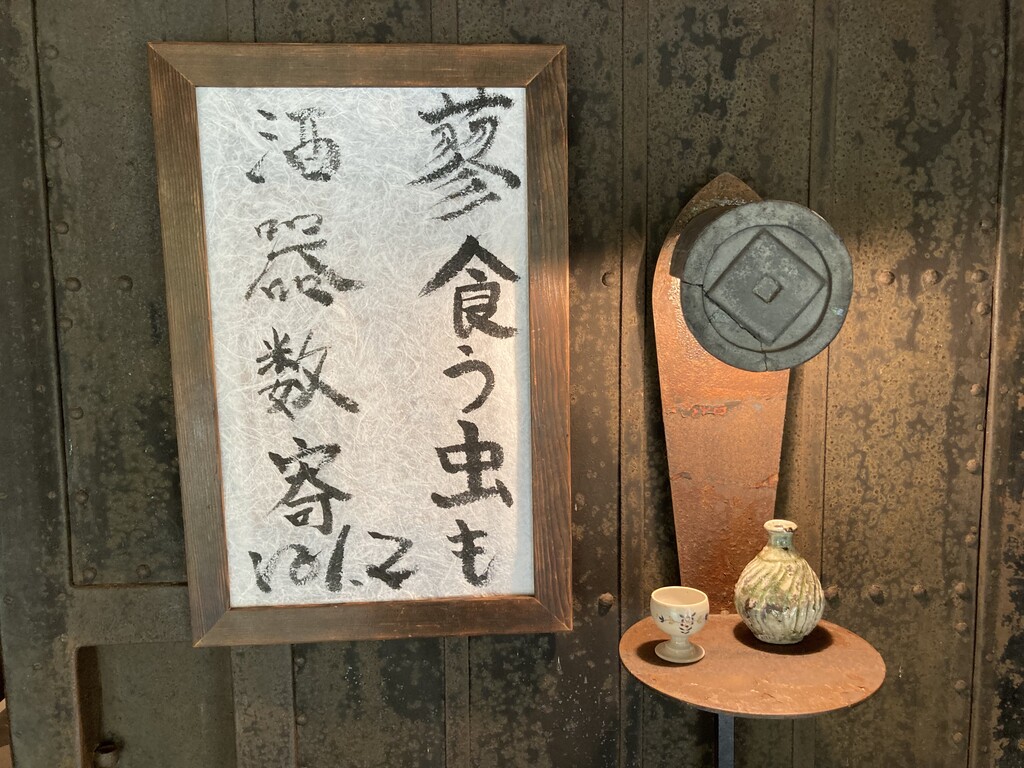 蓼食う虫も
酒器数寄
vol.2